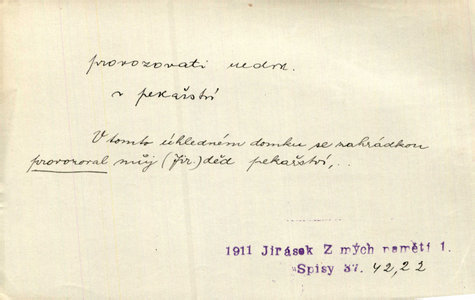 provozovati nedok.
v pekařství
V tomto úhledném domku se zahrádkou
provozoval můj (Jir.) děd pekařství,..
1911 Jirásek Z mých pamětí 1.
Spisy 37. 42,22